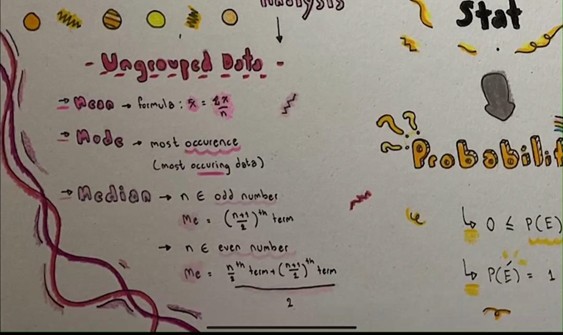 Analysis
- Ungrouped Data -
→ Mean → formula: x̄ = Σx/n
→ Mode → most occurence
(most occuring data)
→ Median → n ∈ odd number
Me = (n+1/2)th term
→ n ∈ even number
Me = n/2 th term + (n+1/2)th term / 2
Stat
??
Probabilit
↳ 0 ≤ P(E)
↳ P(E') = 1